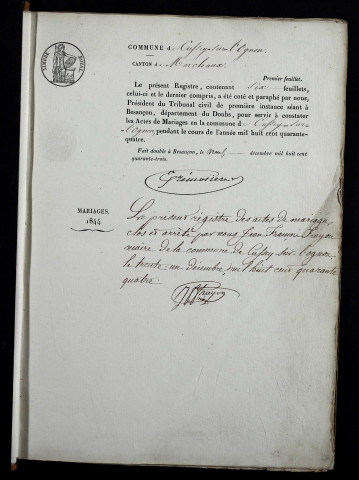 COMMUNE d. Cussey-sur-l'Ognon
CANTON d. Marchaux
Premier feuillet.
Le présent Registre, contenant six feuillets,
celui-ci et le dernier compris, a été coté et paraphé par nous,
Président du Tribunal civil de première instance séant à
Besançon, département du Doubs, pour servir à constater
les Actes de Mariages en la commune d. Cussey-sur-
l'ognon, pendant le cours de l'année mil huit cent quarante-
quatre.
Fait double à Besançon, le neuf décembre mil huit cent
quarante-trois.
MARIAGES.
1844
Le présent registre des actes de mariage
clos et arrêté par nous Jean François
maire de la commune de Cussey-sur-l'ognon,
le trente-un décembre, mil huit cent quarante
quatre